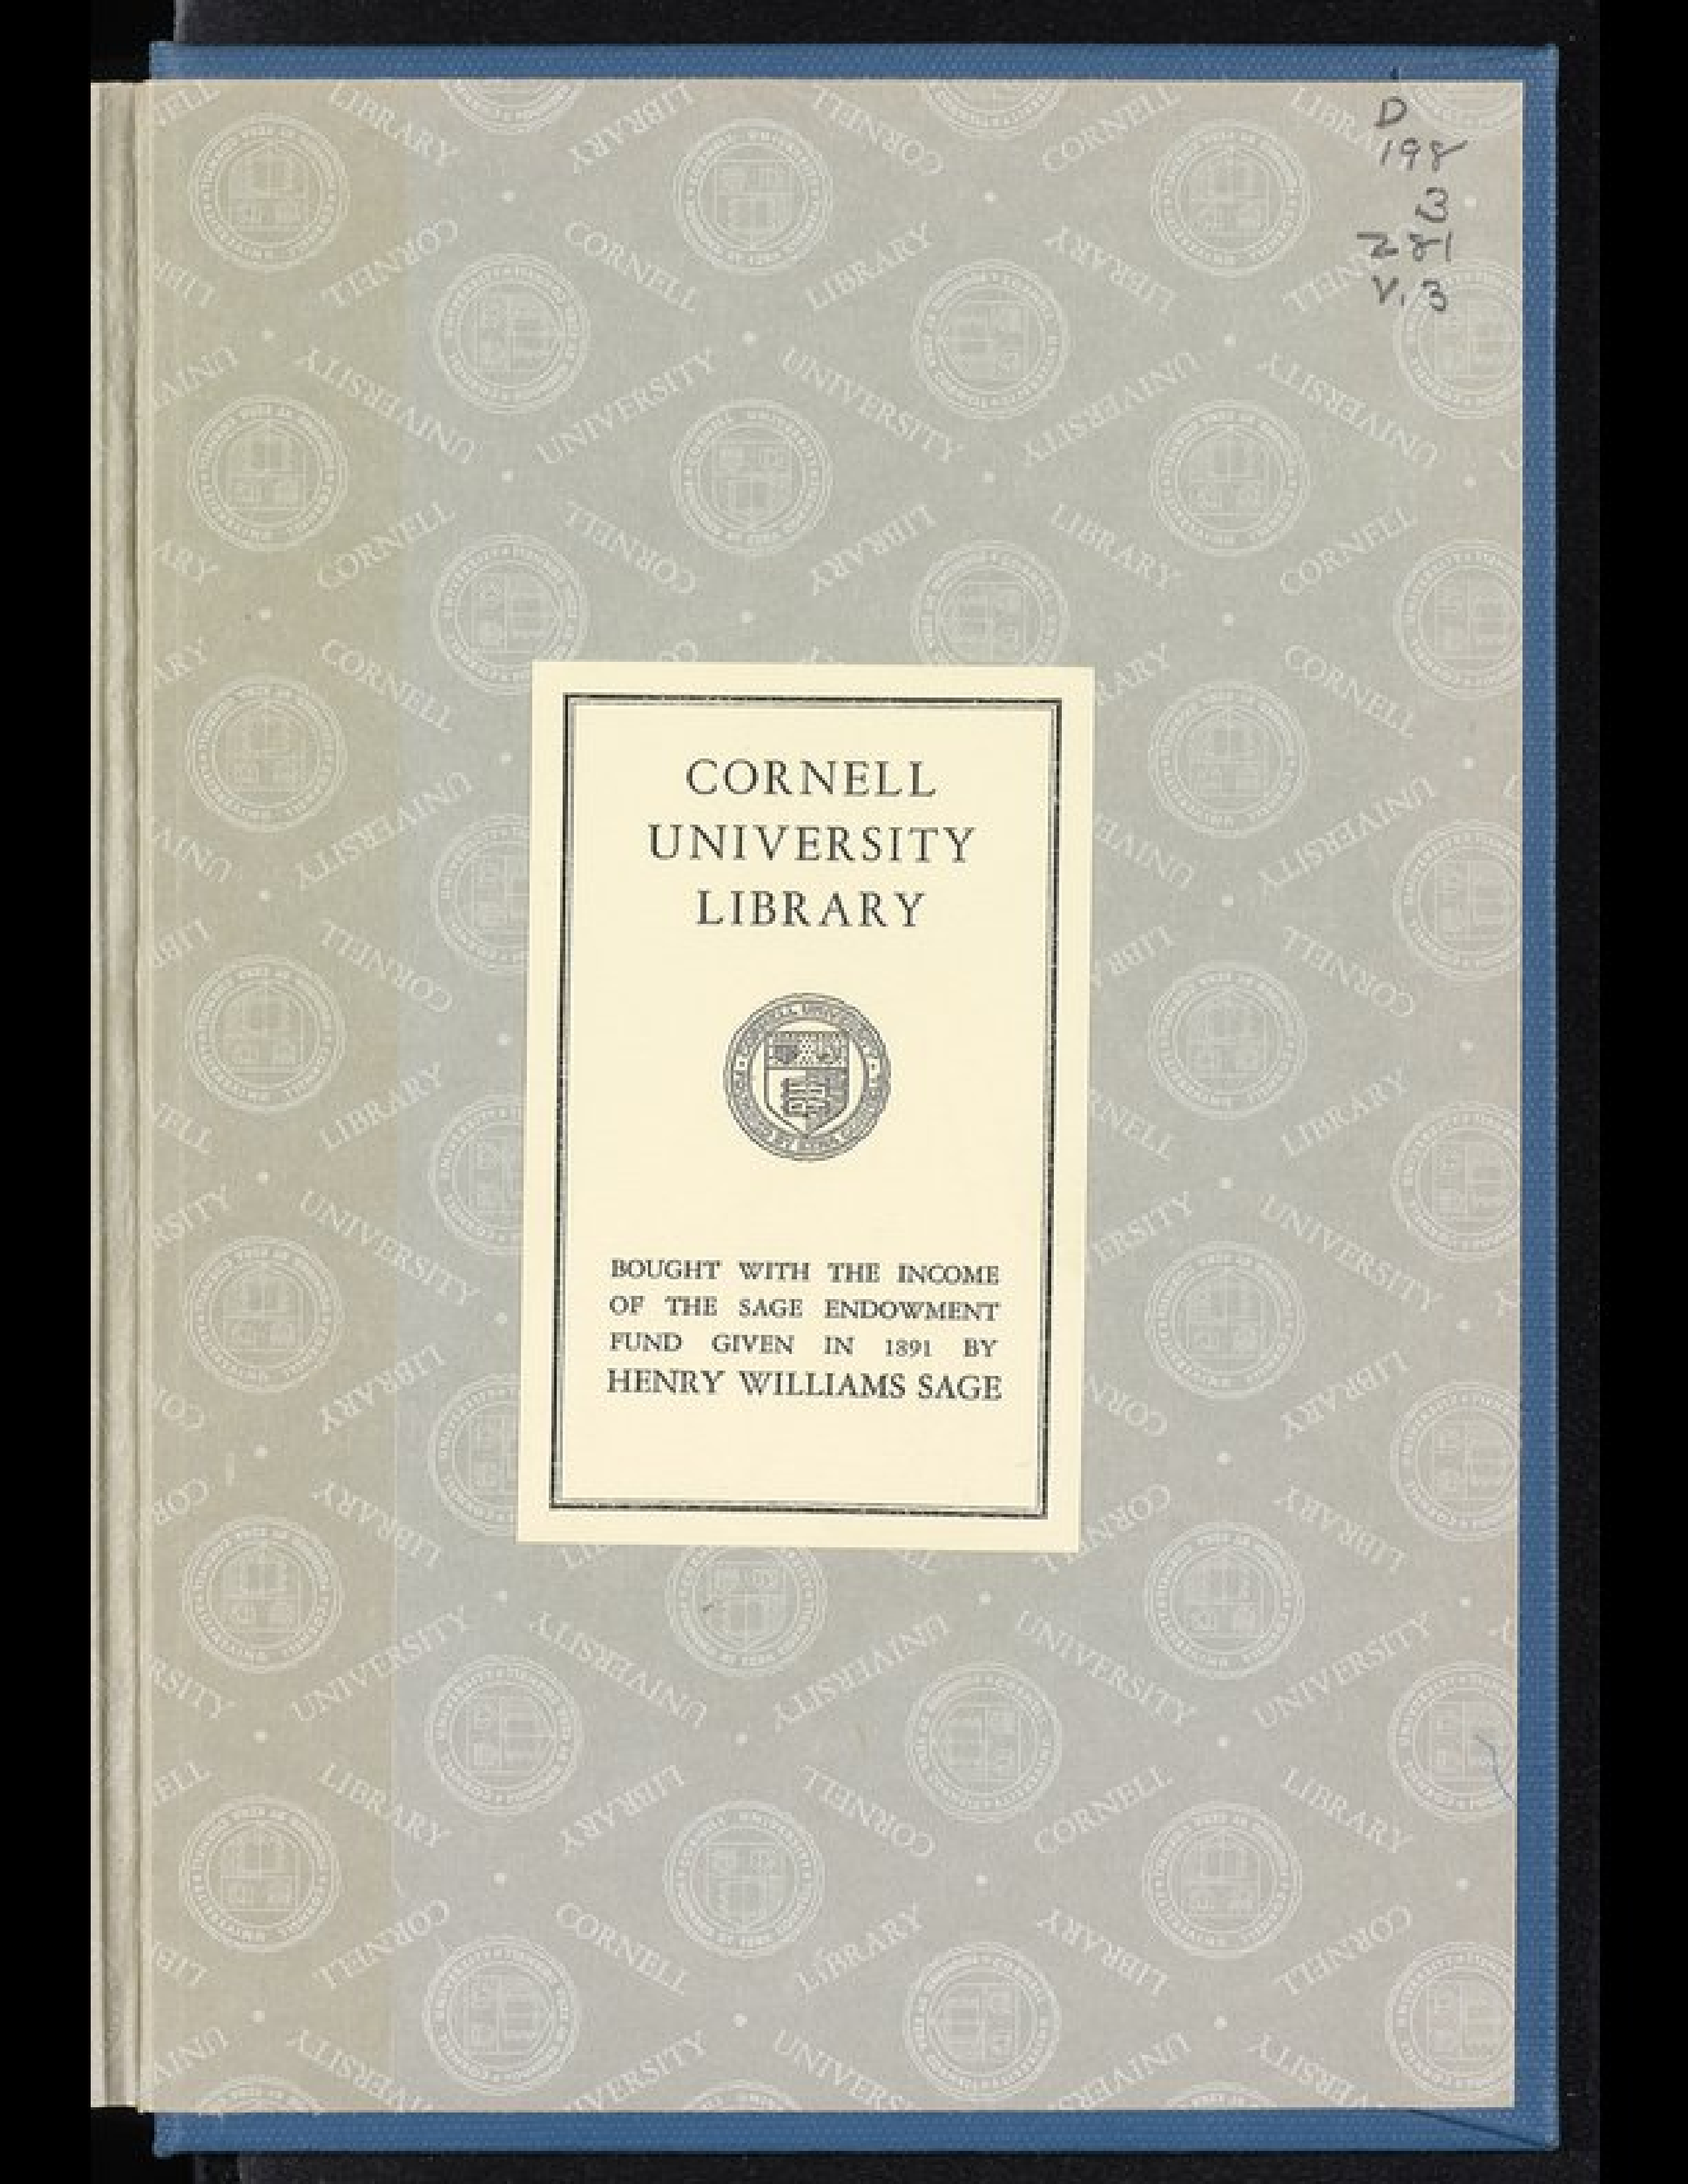 D
198
.3
Z81
V.3
CORNELL
UNIVERSITY
LIBRARY
BOUGHT WITH THE INCOME
OF THE SAGE ENDOWMENT
FUND GIVEN IN 1891 BY
HENRY WILLIAMS SAGE